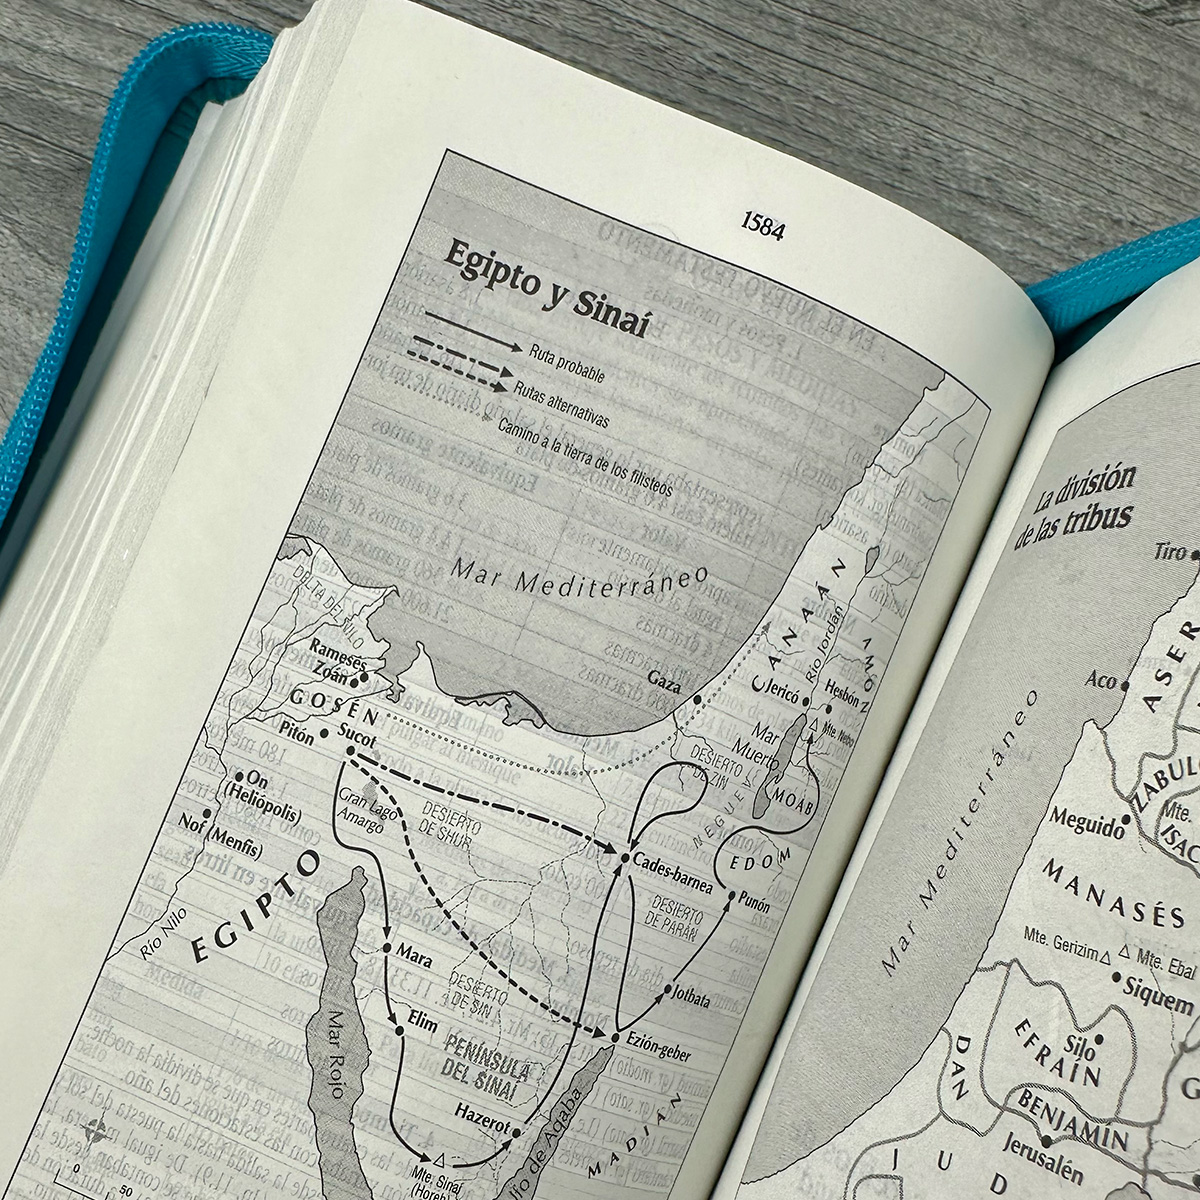 1584
Egipto y Sinaí
Ruta probable
Rutas alternativas
Camino a la tierra de los filisteos
Mar Mediterráneo
DELTA DEL NILO
CANAÁN
Río Jordán
AMÓN
Rameses
Zoán
GOSÉN
Gaza
Jericó
Hesbón
Mte. Nebo
Pitón
Sucot
Mar
Muerto
DESIERTO
DE ZIN
NEGUEV
MOAB
On
(Heliópolis)
Gran Lago
Amargo
DESIERTO
DE SHUR
Nof (Menfis)
EGIPTO
Río Nilo
Cades-barnea
EDOM
Punón
DESIERTO
DE PARÁN
Mara
DESIERTO
DE SIN
Jotbata
Elim
Ezión-geber
PENÍNSULA
DEL SINAÍ
Mar Rojo
Hazerot
lfo de Aqaba
MADIÁN
Mte. Sinaí
(Horeb)
0
50
La división
de las tribus
Tiro
ASER
Aco
Mar Mediterráneo
ZABUL
Mte.
ISAC
Meguido
MANASÉS
Mte. Gerizim
Mte. Ebal
Siquem
EFRAÍN
Silo
DAN
G
BENJAMÍN
Jerusalén
JUD